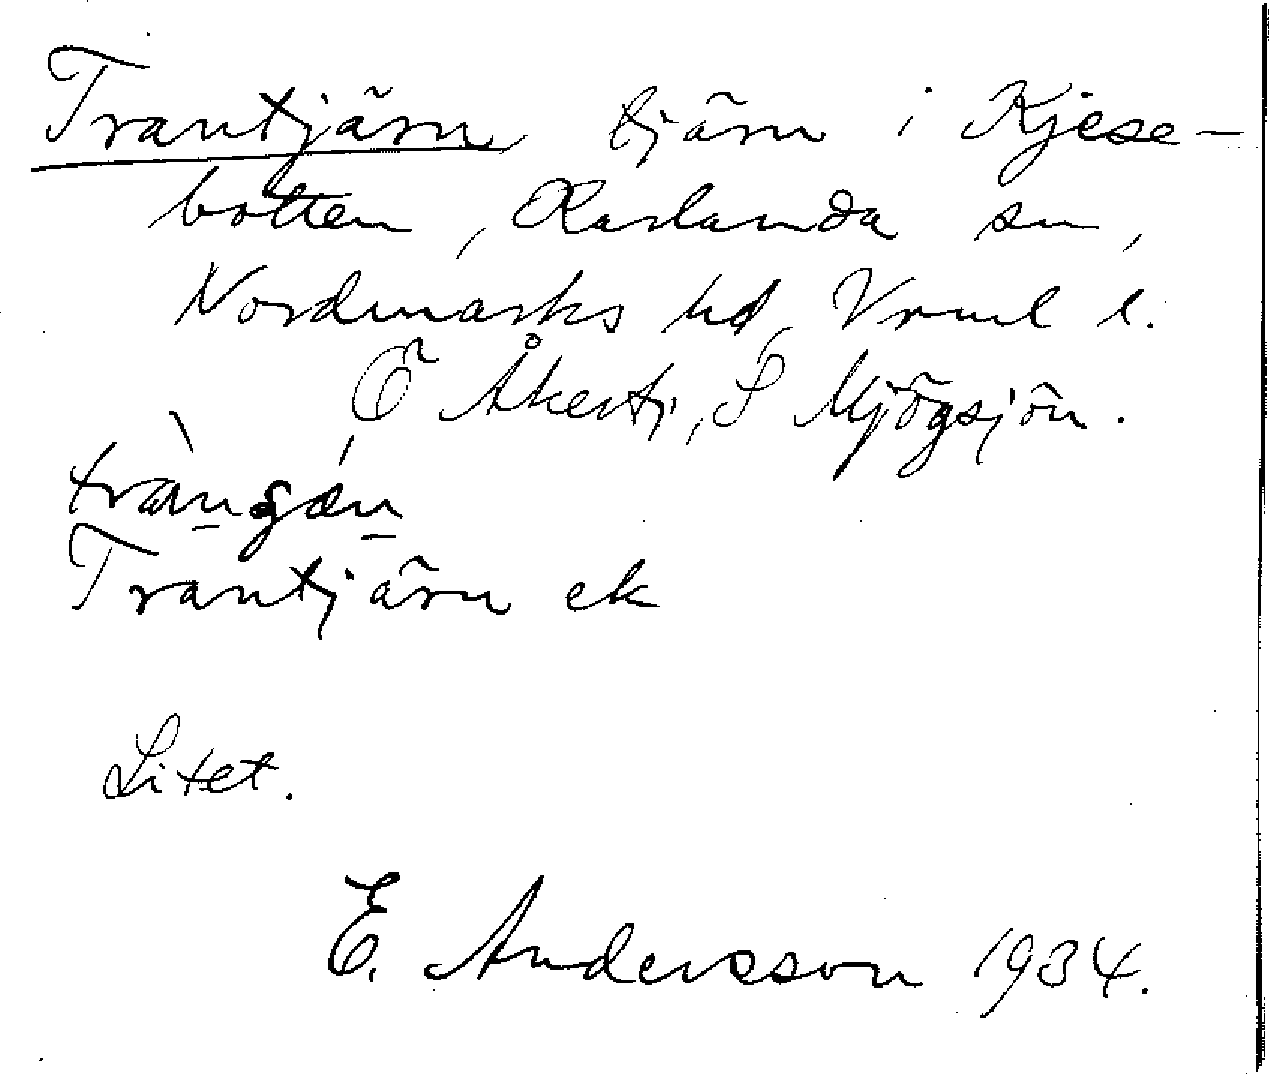 Trantjärn tjärn i Kjese-
botten, Karlanda sn,
Nordmarks hd, Vrml l.
Ö Åkertj, S Mjögsjön.
Trantjärn ek
Litet.
E. Andersson 1934.